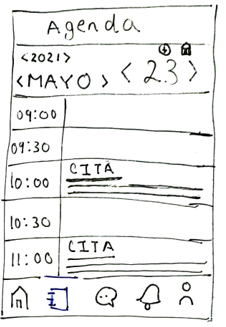 Agenda
<2021>
<MAYO> <23>
09:00
09:30
10:00 CITA
10:30
11:00 CITA